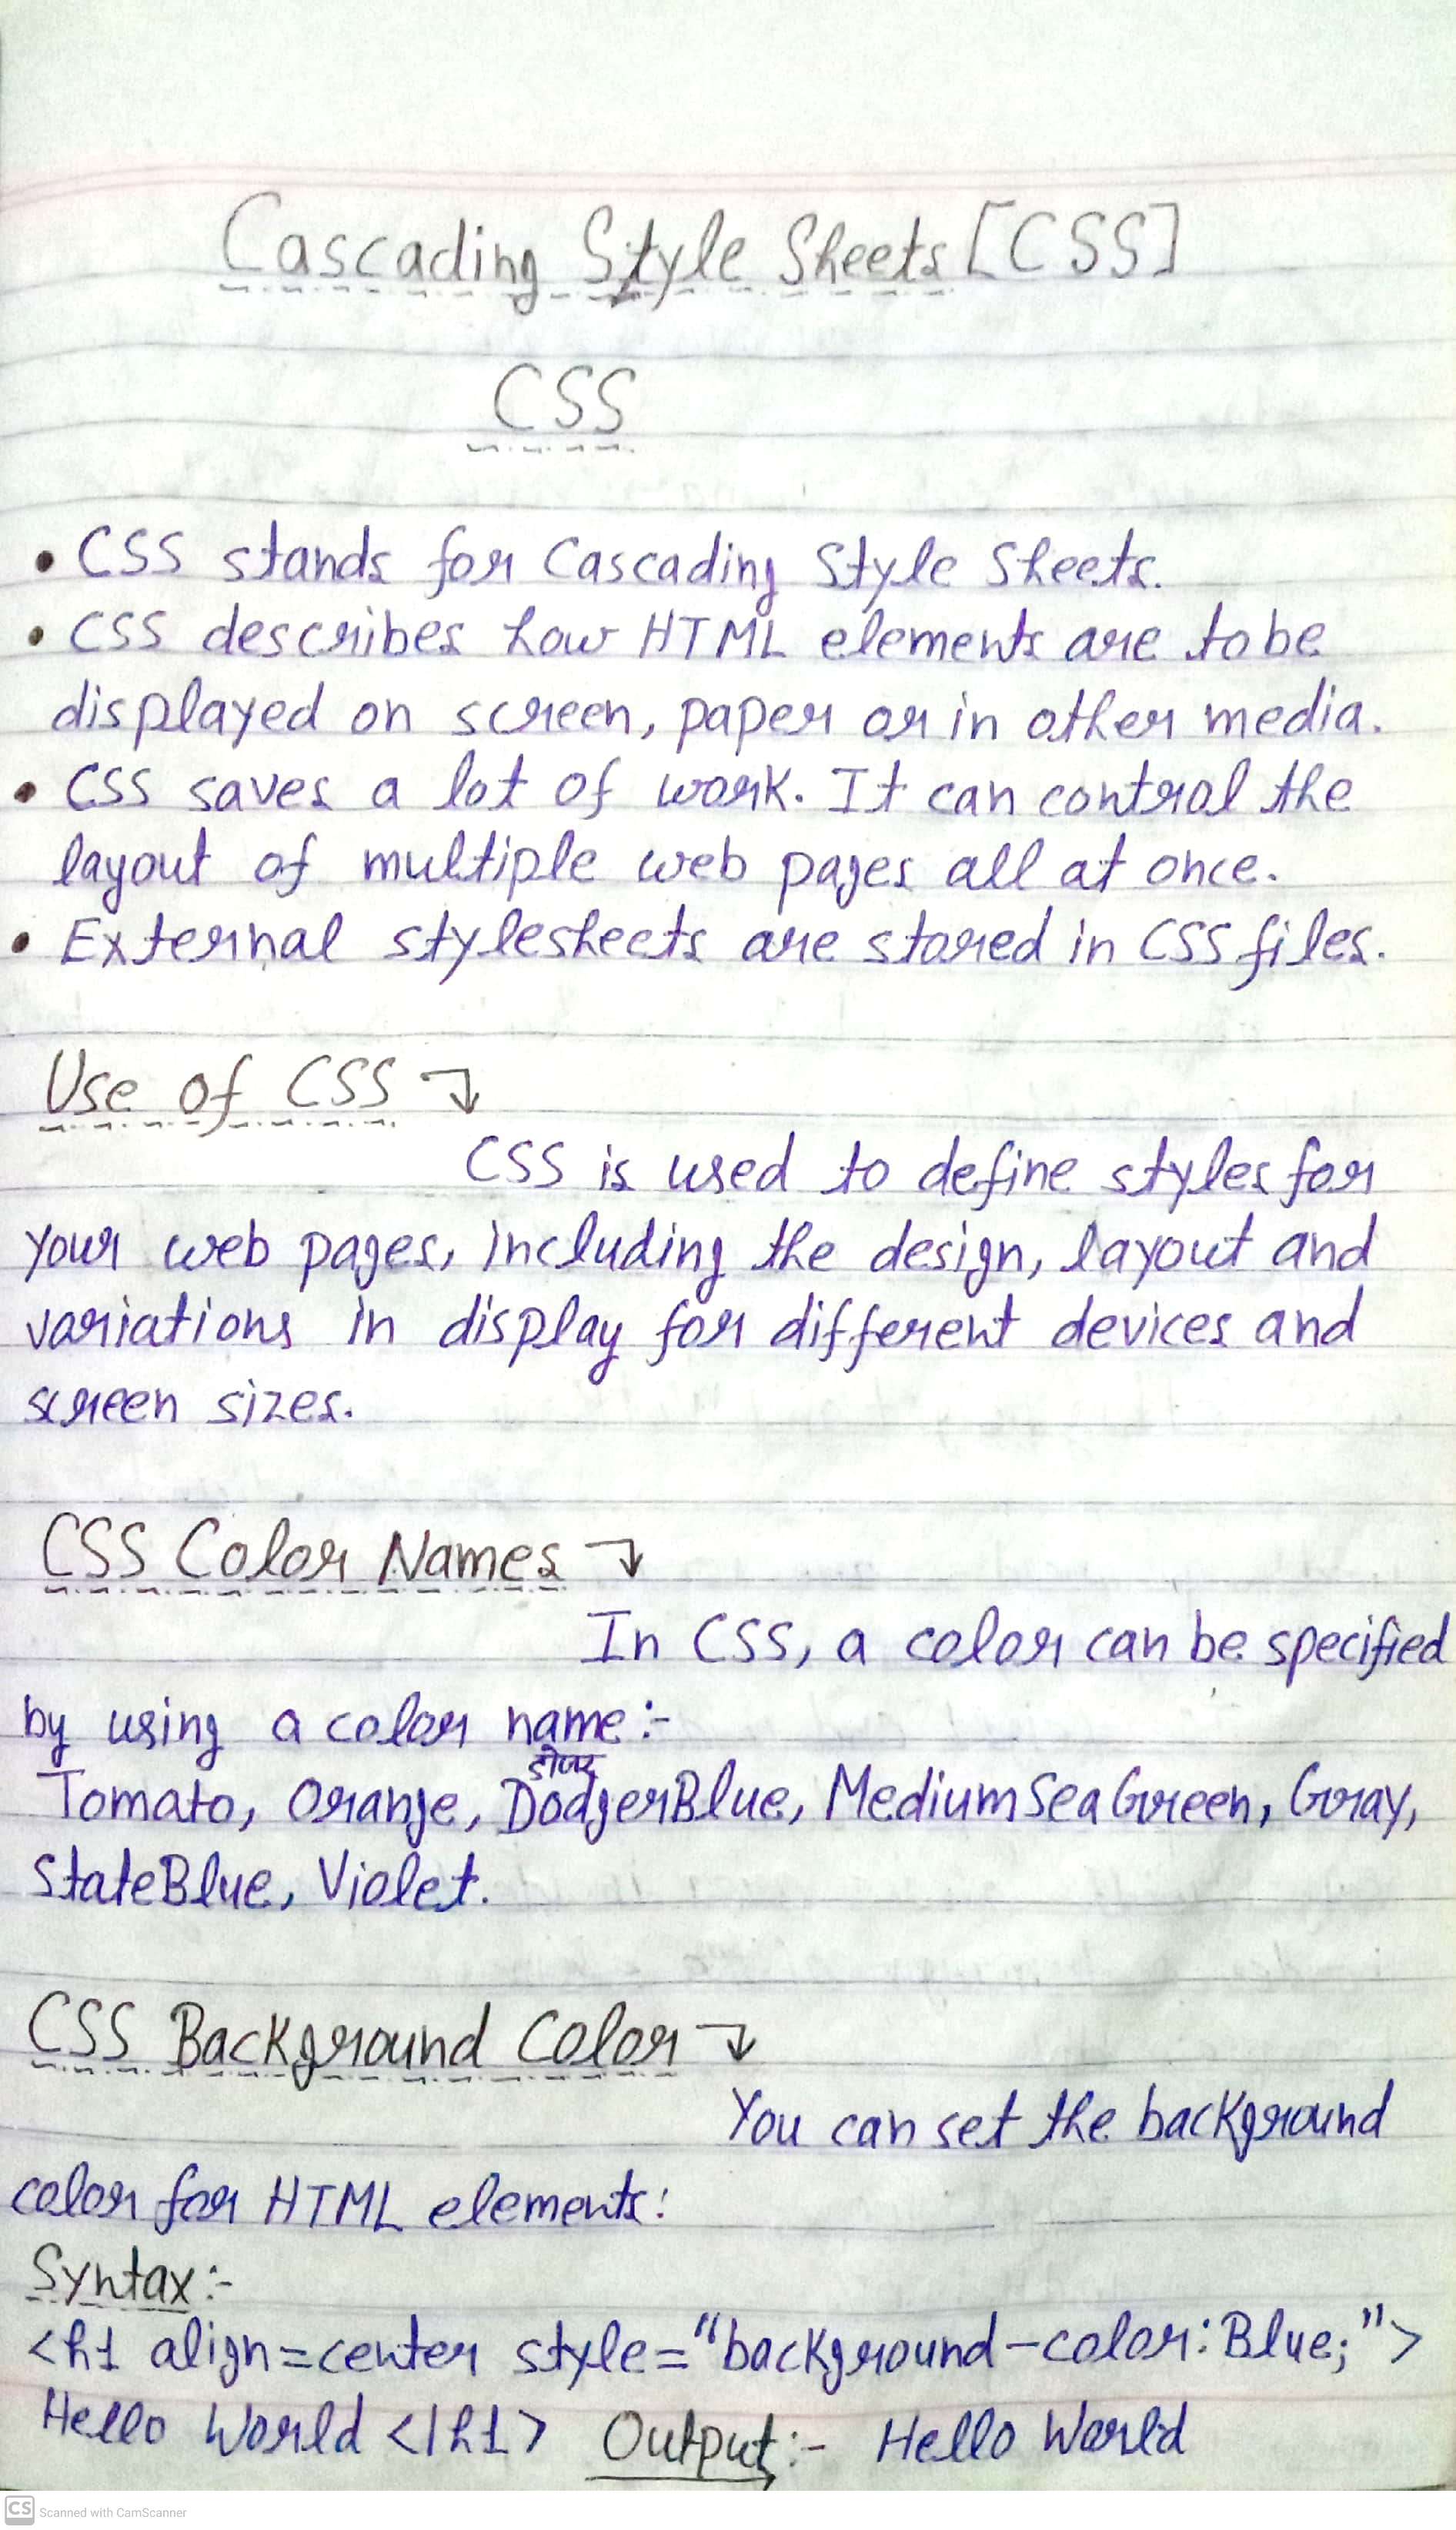 Cascading Style Sheets [CSS]
CSS
• CSS stands for Cascading Style Sheets.
• CSS describes how HTML elements are to be
displayed on screen, paper or in other media.
• CSS saves a lot of work. It can control the
layout of multiple web pages all at once.
• External stylesheets are stored in CSS files.
Use of CSS ↴
CSS is used to define styles for
your web pages, including the design, layout and
variations in display for different devices and
screen sizes.
CSS Color Names ↴
In CSS, a color can be specified
by using a color name:-
डोजर
Tomato, Orange, DodgerBlue, MediumSeaGreen, Gray,
StateBlue, Violet.
CSS Background Color ↴
You can set the background
color for HTML elements:
Syntax:-
<h1 align=center style="background-color:Blue;">
Hello World </h1> Output:- Hello World
CS Scanned with CamScanner